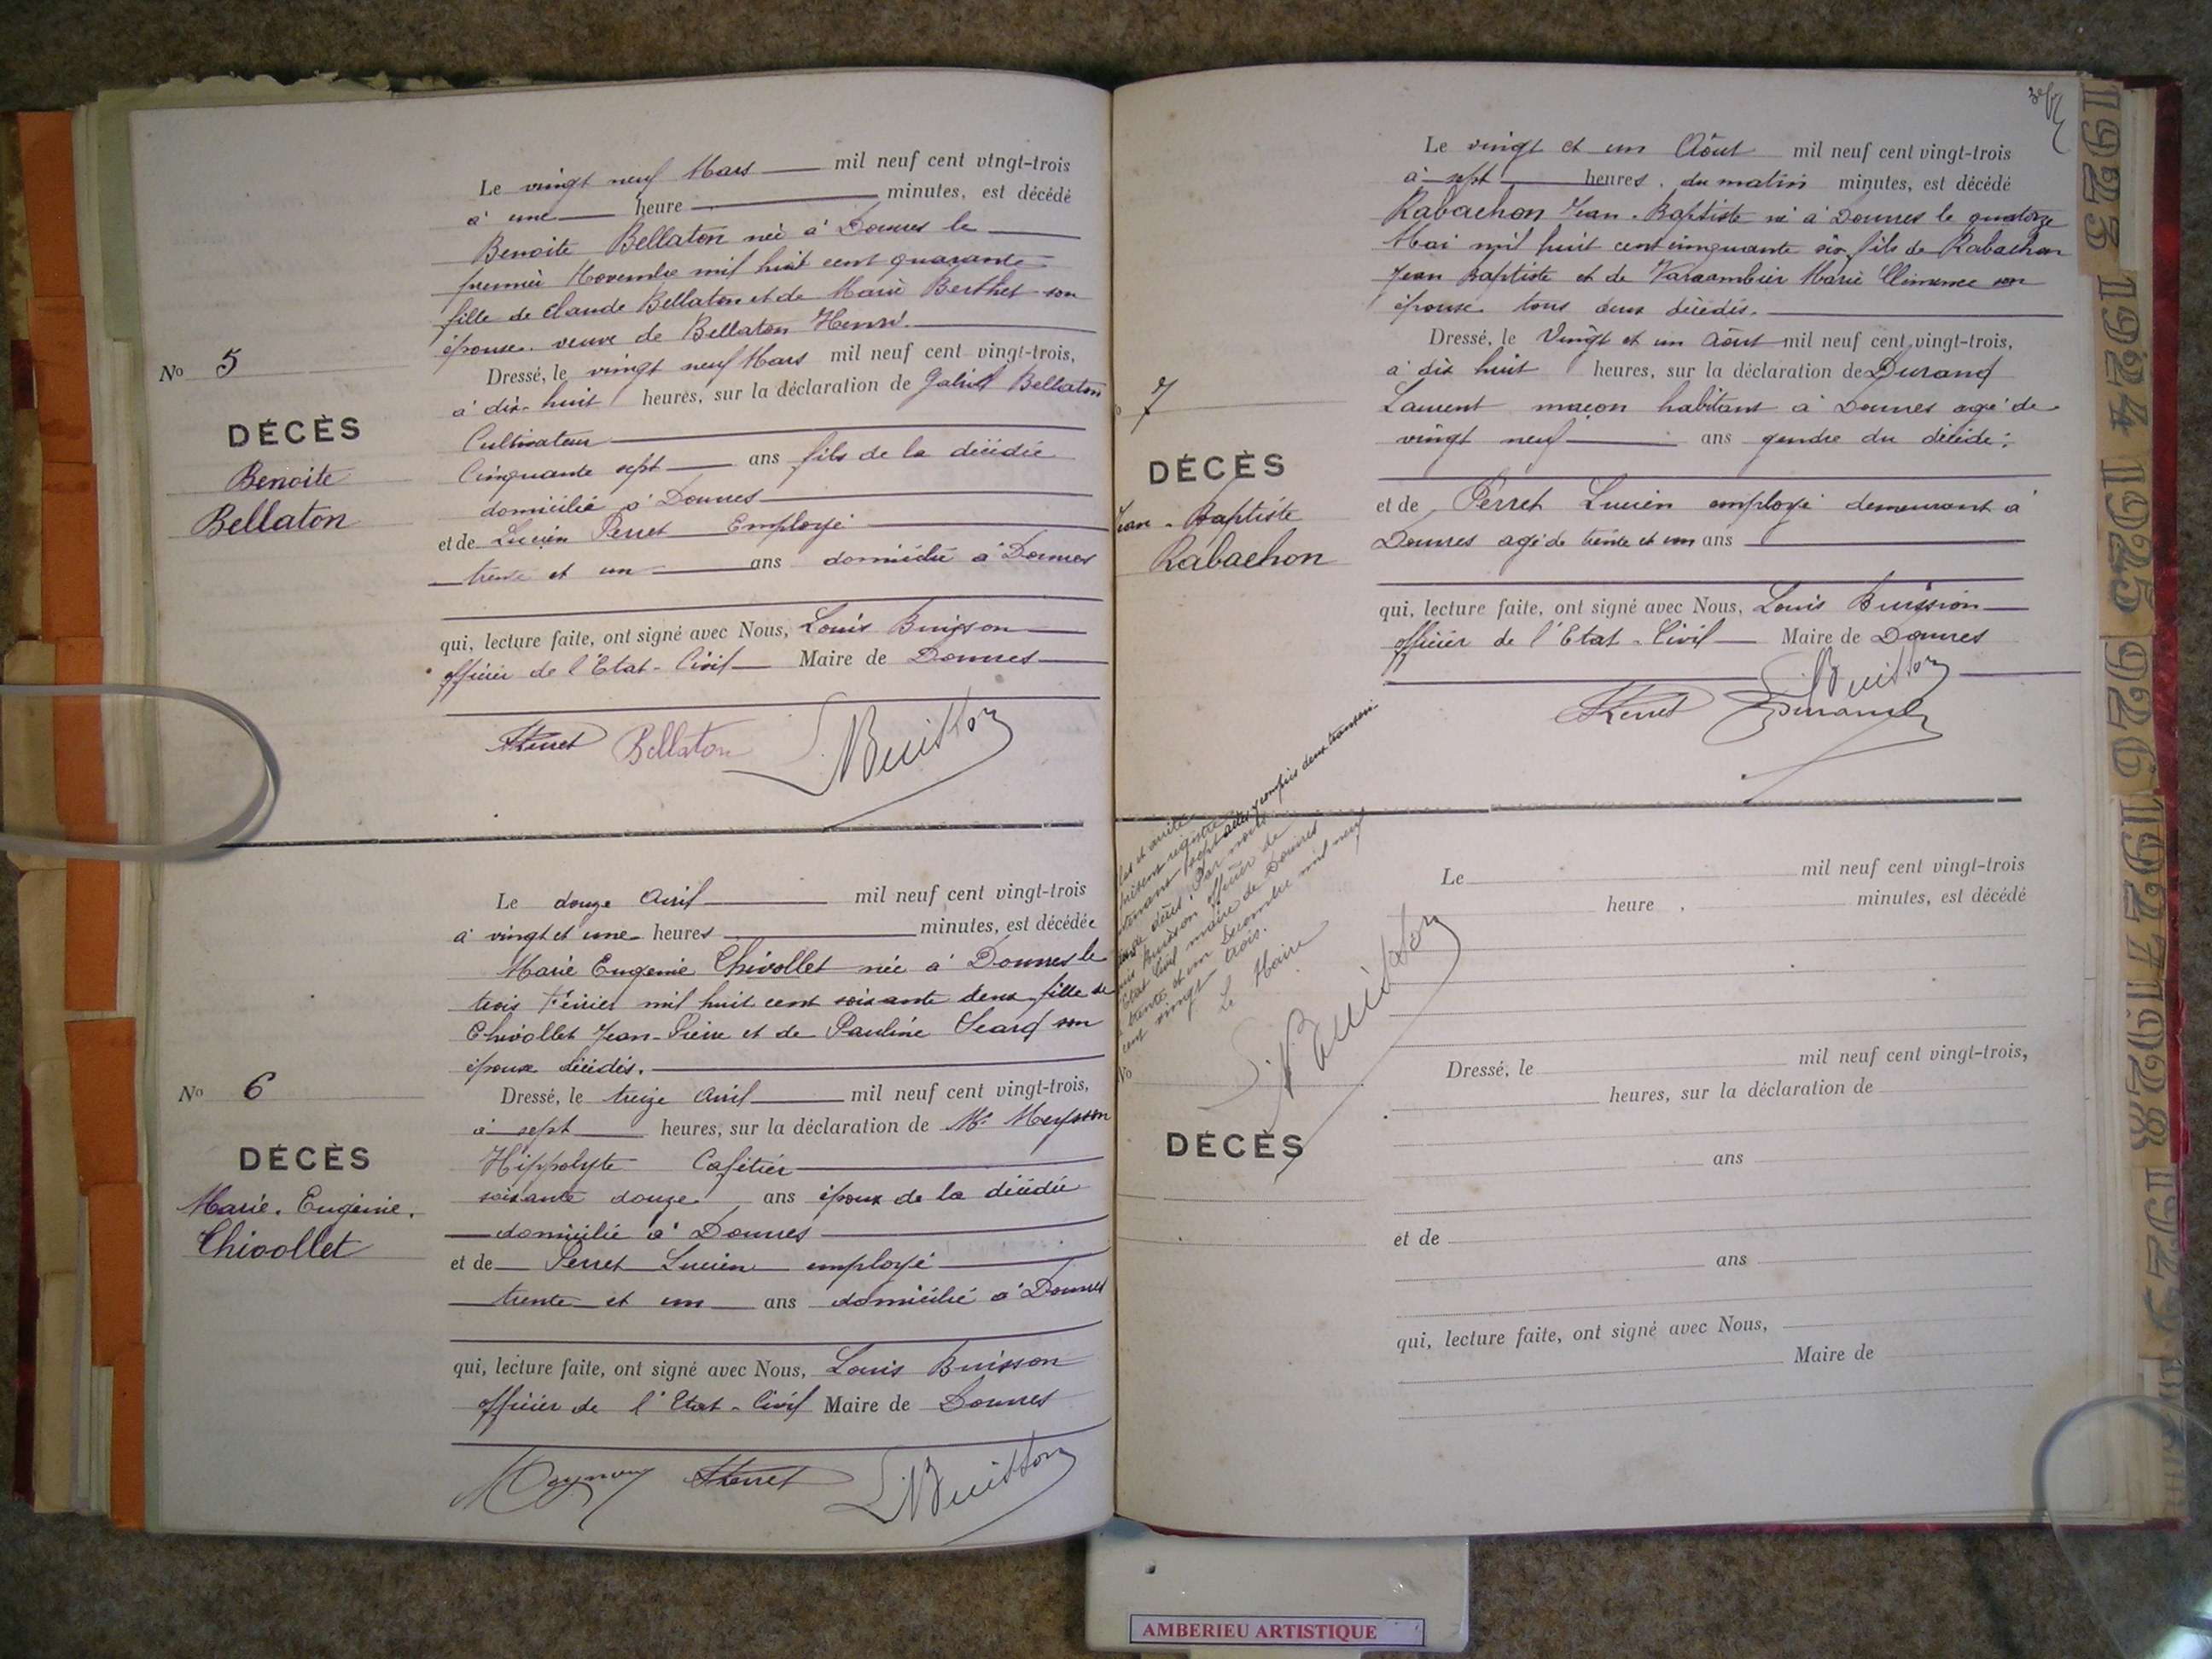 Le vingt neuf Mars mil neuf cent vingt-trois
à une heure minutes, est décédé
Benoite Bellaton née à Douvres le
premier Novembre mil huit cent quarante
fille de Claude Bellaton et de Marie Berthet son
épouse. veuve de Bellaton Henri.
No 5
DÉCÈS
Benoite
Bellaton
Dressé, le vingt neuf Mars mil neuf cent vingt-trois,
à dix-huit heures, sur la déclaration de Bellaton
Cultivateur
Cinquante sept ans fils de la décédée
domicilié à Douvres
et de Lucien Perret Employé
trente et un ans domicilié à Douvres
qui, lecture faite, ont signé avec Nous, Louis Buisson
officier de l'Etat-Civil Maire de Douvres
Perret Bellaton L. Buisson
Le douze Avril mil neuf cent vingt-trois
à vingt et une heures minutes, est décédée
Marie Eugenie Chivollet née à Douvres le
trois Février mil huit cent soixante deux fille de
Chivollet Jean-Pierre et de Pauline son
épouse décédés.
No 6
DÉCÈS
Marie. Eugénie.
Chivollet
Dressé, le treize Avril mil neuf cent vingt-trois,
à sept heures, sur la déclaration de Mr Meysson
Hippolyte Cafetier
soixante douze ans époux de la décédée
domicilié à Douvres
et de Perret Lucien employé
trente et un ans domicilié à Douvres
qui, lecture faite, ont signé avec Nous, Louis Buisson
officier de l'Etat-Civil Maire de Douvres
Perret L. Buisson
Le vingt et un Août mil neuf cent vingt-trois
à sept heures. du matin minutes, est décédé
Rabachon Jean-Baptiste né à Douvres le quatorze
Mai mil huit cent cinquante six fils de Rabachon
Jean Baptiste et de Varambier Marie Climence son
épouse tous deux décédés.
7
DÉCÈS
Jean-Baptiste
Rabachon
Dressé, le Vingt et un Août mil neuf cent vingt-trois,
à dix huit heures, sur la déclaration de Durand
Laurent maçon habitant à Douvres agé de
vingt neuf ans gendre du décédé;
et de Perret Lucien employé demeurant à
Douvres agé de trente et un ans
qui, lecture faite, ont signé avec Nous, Louis Buission
officier de l'Etat-Civil Maire de Douvres
L. Buisson
Perret Durand
sept actes y compris deux transcri-
Buisson officier de
Etat Civil maire de Douvres
trente et un Decembre mil neuf
cent vingt trois.
Le Maire
L. Buisson
Le mil neuf cent vingt-trois
heure minutes, est décédé
No
DÉCÈS
Dressé, le mil neuf cent vingt-trois,
heures, sur la déclaration de
ans
et de
ans
qui, lecture faite, ont signé avec Nous,
Maire de
1923 1924 1925 1926 1927 1928
AMBERIEU ARTISTIQUE